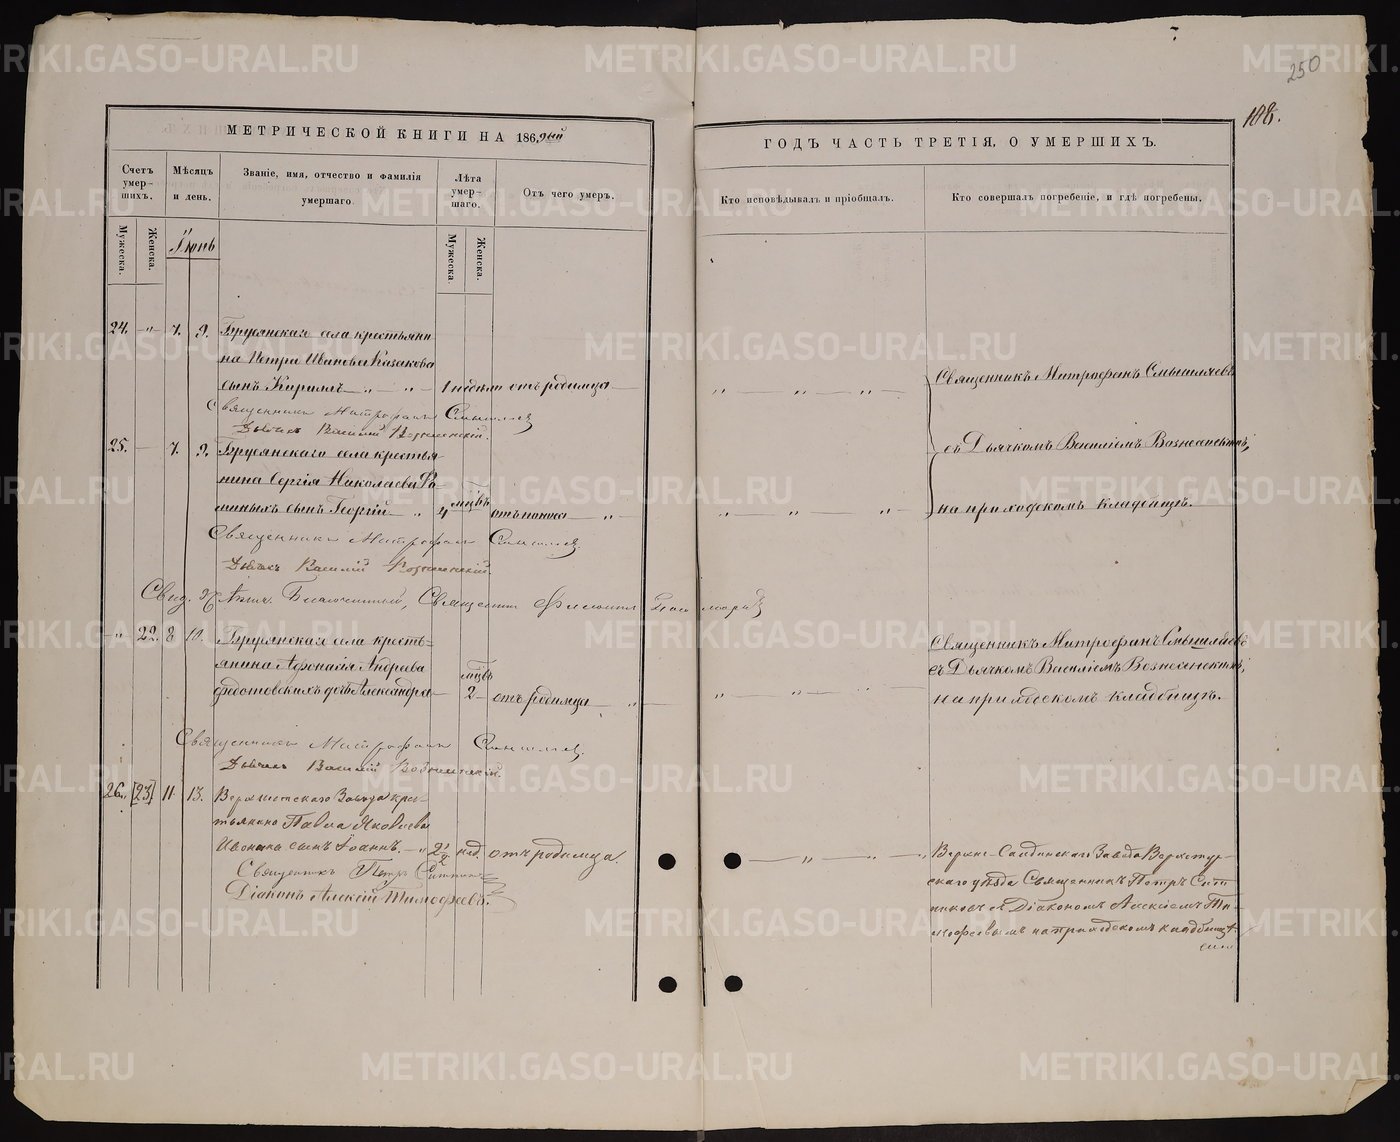 250
188.
МЕТРИЧЕСКОЙ КНИГИ НА 1869ый
ГОДЪ ЧАСТЬ ТРЕТІЯ, О УМЕРШИХЪ.
Счетъ умер-шихъ.
Мѣсяцъ и день.
Званіе, имя, отчество и фамилія умершаго.
Лѣта умер-шаго.
Отъ чего умеръ.
Кто исповѣдывалъ и пріобщалъ.
Кто совершалъ погребеніе, и гдѣ погребены.
Мужеска.
Женска.
Іюнь
Мужеска.
Женска.
24. -„- 7. 9. Брусянскаго села крестьяни-
на Петра Иванова Казакова
сынъ Кириллъ — „ — „ 1 недели отъ родимца
Священникъ Митрофанъ Смышляевъ
Священникъ Митрофанъ Смышляевъ
Дьячекъ Василій Вознесенскій.
съ Дьячкомъ Василіемъ Вознесенскимъ,
25. — 7. 9. Брусянскаго села крестья-
нина Сергія Николаева Ро-
мцвъ
на приходскомъ кладбищѣ.
миныхъ сынъ Георгій — „ 4 отъ поноса — „
Священникъ Митрофанъ Смышляев.
Дьячекъ Василій Вознесенскій.
Благочинный, Священникъ
„ 22. 8 10. Брусянскаго села кресть-
янина Афонасія Андреева
мцвъ
Федотовскихъ дочь Александра 2 — отъ родимца — „
Священникъ Митрофанъ Смышляевъ
съ Дьячкомъ Василіемъ Вознесенскимъ,
на приходскомъ кладбищѣ.
Священникъ Митрофанъ Смышляев.
Дьячекъ Василій Вознесенскій.
26. [23] 11. 13. Верхисетскаго Завода кре-
стьянина Павла Яковлева
Ивонина сынъ Іоаннъ. — „ 2½ нед. отъ родимца.
Священникъ Петръ
Діаконъ Алексій Тимофеевъ.
Верхне-Салдинскаго Завода Верхотур-
скаго уѣзда Священникъ Петръ
съ Діакономъ Алексіемъ Ти-
мофеевымъ на приходскомъ кладбищѣ
METRIKI.GASO-URAL.RU